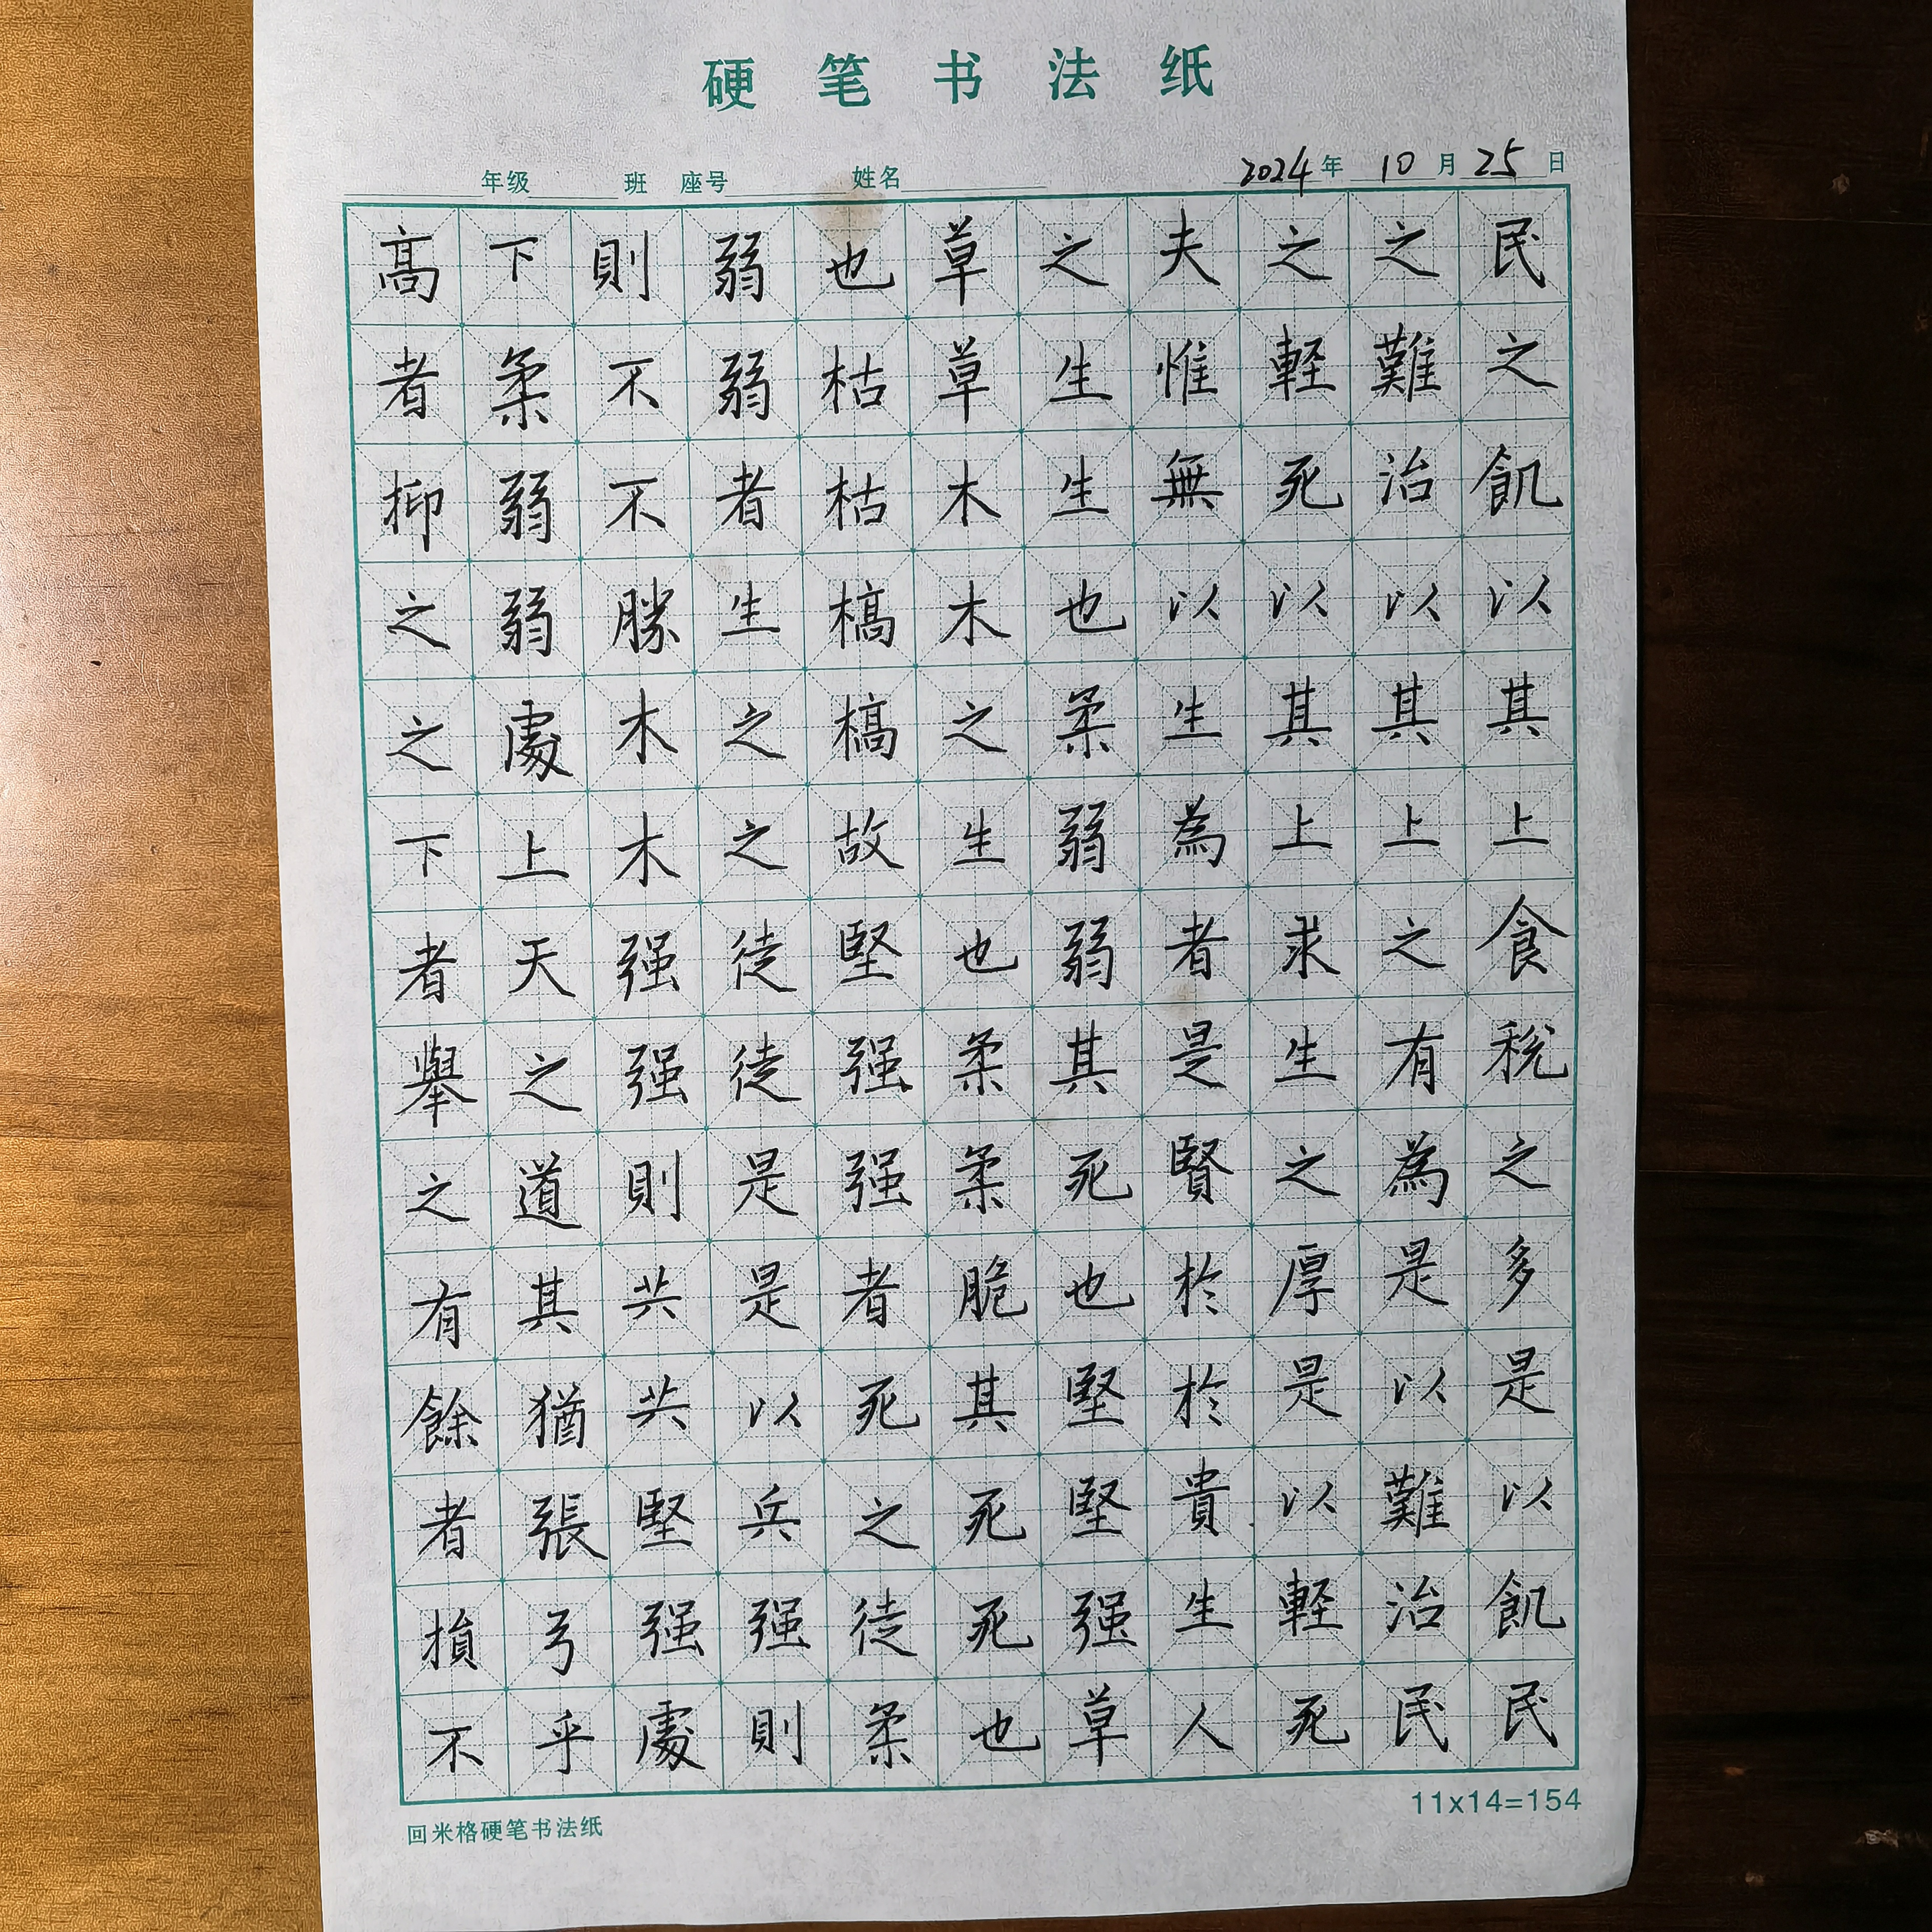 硬笔书法纸
年级 班 座号 姓名 2024年10月25日
民之飢以其上食税之多是以飢民
之難治以其上之有為是以難治民
之軽死以其上求生之厚是以軽死
夫惟無以生為者是賢於於貴生人
之生生也柔弱弱其死也堅堅强草
草草木木之生也柔柔脆其死死也
也枯枯槁槁故堅强强者死之徒柔
弱弱者生之之徒徒是是以兵强則
則不不勝木木强强則共共堅强處
下柔弱弱處上天之道其猶張弓乎
高者抑之之下者舉之有餘者損不
回米格硬笔书法纸
11x14=154